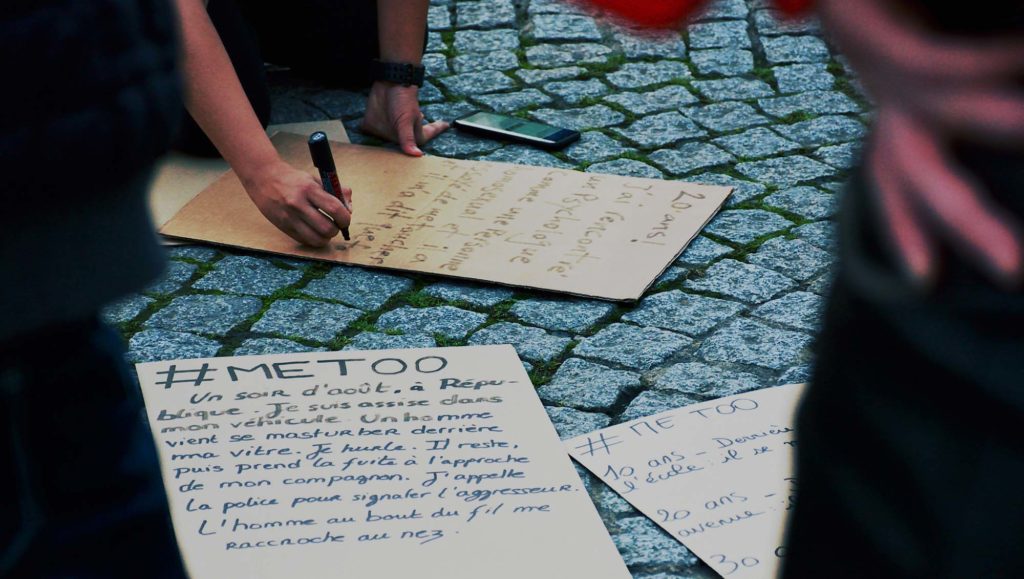 20 ans!
J'ai rencontré
un Psychologue
comme une Personne
et il a
de me toucher
et il m'a dit que
#METOO
Un soir d'août, à Répu-
blique. Je suis assise dans
mon véhicule. Un homme
vient se masturber derrière
ma vitre. Je hurle. Il reste,
puis prend la fuite à l'approche
de mon compagnon. J'appelle
la police pour signaler l'agresseur.
L'homme au bout du fil me
raccroche au nez.
# ME TOO
10 ans - Derrière
l'école : il se
20 ans -
avenue :
30 a